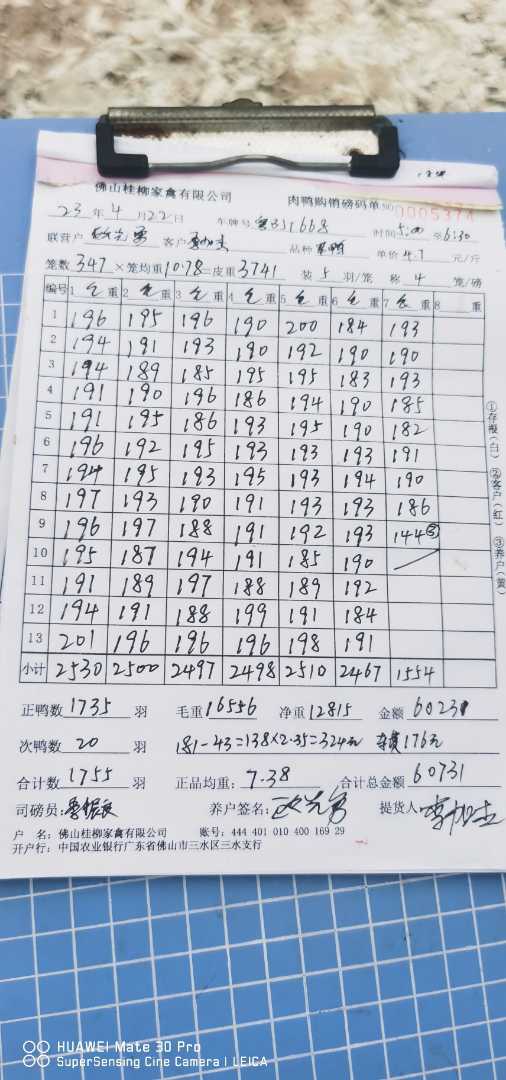 佛山桂柳家禽有限公司 肉鸭购销磅码单 NO 0005374
23年4月22日 车牌号 时间5:00至6:30
联营户 客户 品种 单价4.7元/斤
笼数347×笼均重10.78=皮重3741 装5羽/笼 称4笼/磅
编号 1 毛重 2 毛重 3 毛重 4 毛重 5 毛重 6 毛重 7 毛重 8 重
1 196 195 196 190 200 184 193
2 194 191 193 190 192 190 190
3 194 189 185 195 195 183 193
4 191 190 196 186 194 190 185
5 191 195 186 193 195 190 182
6 196 192 195 193 193 193 191
7 194 195 193 195 193 194 190
8 197 193 190 191 193 193 186
9 196 197 188 191 192 193 144③
10 195 187 194 191 185 190
11 191 189 197 188 189 192
12 194 191 188 199 191 184
13 201 196 196 196 198 191
小计 2530 2500 2497 2498 2510 2467 1554
①存根(白) ②客户(红) ③养户(黄)
正鸭数1735羽 毛重16556 净重12815 金额60231
次鸭数20羽 181-43=138×2.35=324元 176元
合计数1755羽 正品均重:7.38 合计总金额60731
司磅员: 养户签名: 提货人
户 名:佛山桂柳家禽有限公司 账号:444 401 010 400 169 29
开户行:中国农业银行广东省佛山市三水区三水支行
HUAWEI Mate 30 Pro
SuperSensing Cine Camera | LEICA